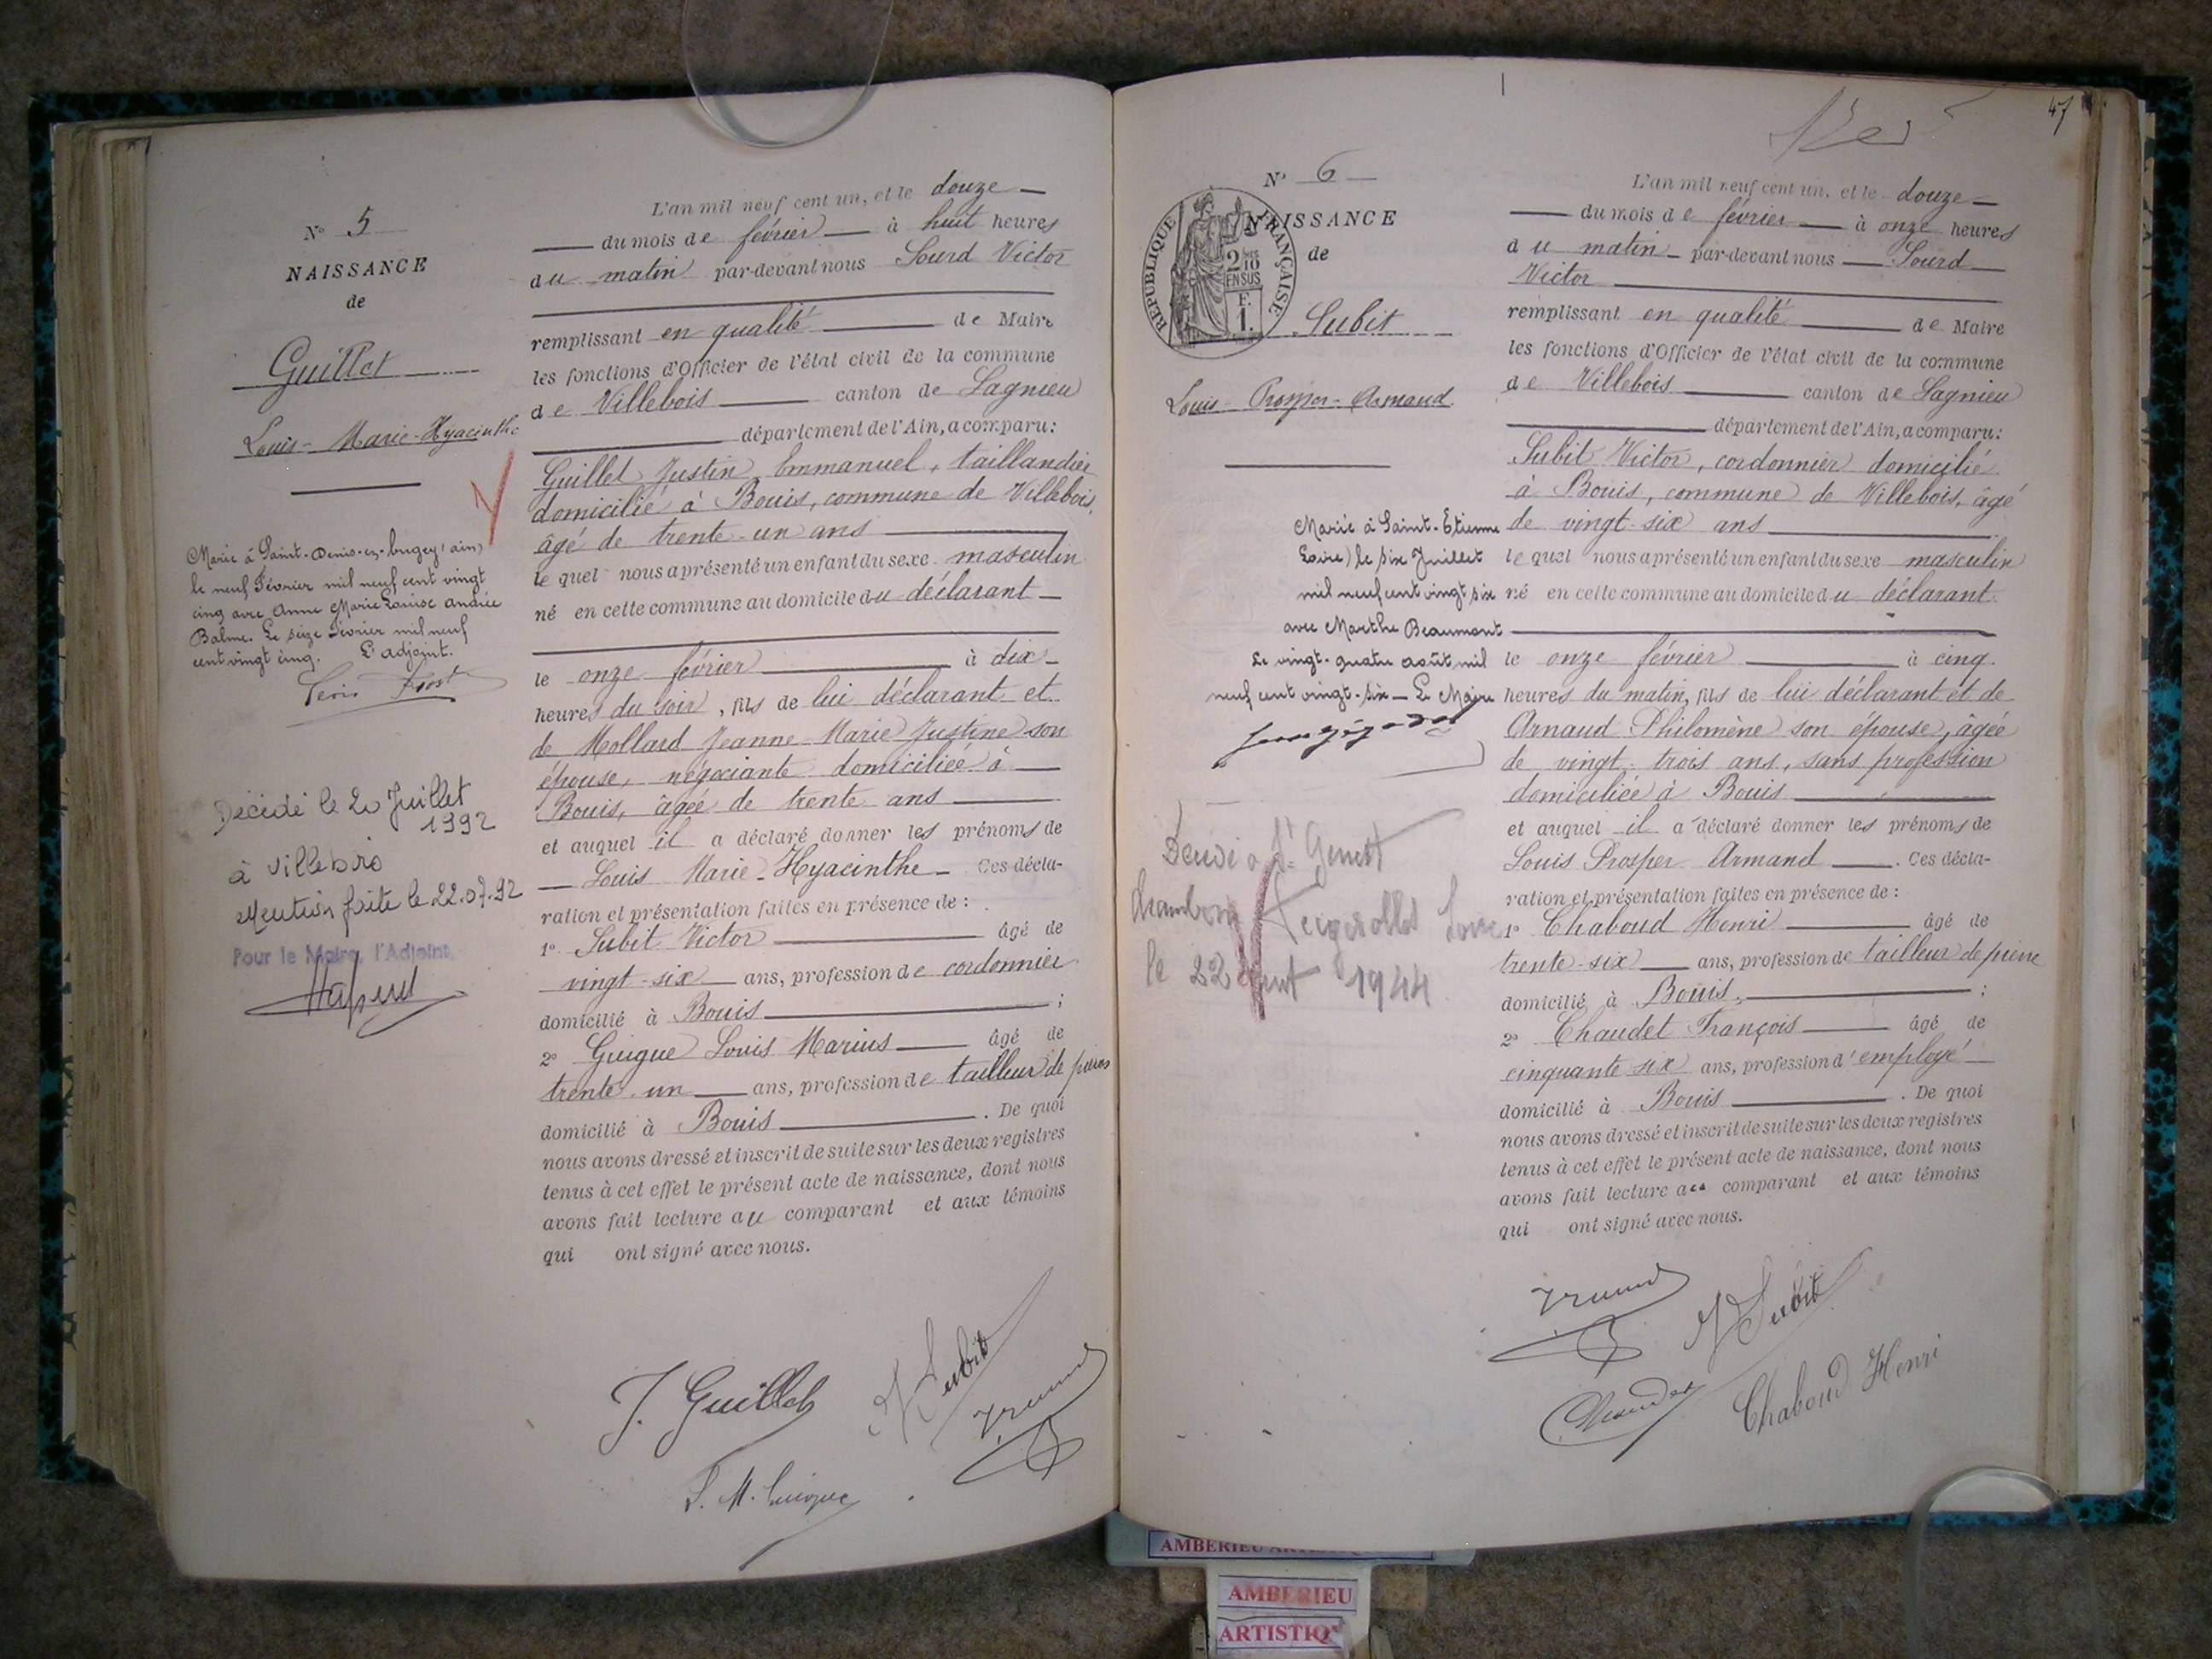 N° 5
NAISSANCE
de
Guillet
Louis-Marie-Hyacinthe
Marié à Saint-Denis-en-bugey (ain)
le neuf Février mil neuf cent vingt
cinq avec Anne Marie Louise andrée
Balme. Le seize Février mil neuf
cent vingt cinq. L'adjoint.
Décédé le 20 Juillet
1992
à Villebois
Mention faite le 22.07.92
Pour le Maire, l'Adjoint,
L'an mil neuf cent un, et le douze
du mois de février à huit heures
du matin par-devant nous Sourd Victor
remplissant en qualité de Maire
les fonctions d'Officier de l'état civil de la commune
de Villebois canton de Lagnieu
département de l'Ain, a comparu:
Guillet Justin Emmanuel, taillandier
domicilié à Bouis, commune de Villebois,
âgé de trente-un ans
le quel nous a présenté un enfant du sexe masculin
né en cette commune au domicile du déclarant
le onze février à dix
heures du soir, fils de lui déclarant et
de Mollard Jeanne-Marie Justine son
épouse, négociante domiciliée à
Bouis, âgée de trente ans
et auquel il a déclaré donner les prénoms de
Louis Marie-Hyacinthe Ces décla-
ration et présentation faites en présence de :
1° Subit Victor âgé de
vingt-six ans, profession de cordonnier
domicilié à Bouis ;
2° Guigue Louis Marius âgé de
trente-un ans, profession de tailleur de pierres
domicilié à Bouis . De quoi
nous avons dressé et inscrit de suite sur les deux registres
tenus à cet effet le présent acte de naissance, dont nous
avons fait lecture au comparant et aux témoins
qui ont signé avec nous.
J. Guillet
V Subit
L. M. Guigue
47
N° 6
NAISSANCE
de
RÉPUBLIQUE FRANÇAISE
2/10
EN SUS
F.
1.
Subit
Louis-Prosper-Armand
Marié à Saint-Etienne
Loire) le six Juillet
mil neuf cent vingt six
avec Marthe Beaumont
Le vingt-quatre août mil
neuf cent vingt-six — Le Maire
à St Genest
Loire
le 22 1944
L'an mil neuf cent un, et le douze
du mois de février à onze heures
du matin par-devant nous Sourd
Victor
remplissant en qualité de Maire
les fonctions d'Officier de l'état civil de la commune
de Villebois canton de Lagnieu
département de l'Ain, a comparu:
Subit Victor, cordonnier domicilié
à Bouis, commune de Villebois, âgé
de vingt-six ans
le quel nous a présenté un enfant du sexe masculin
né en cette commune au domicile du déclarant.
le onze février à cinq
heures du matin, fils de lui déclarant et de
Arnaud Philomène son épouse, âgée
de vingt-trois ans, sans profession
domiciliée à Bouis
et auquel il a déclaré donner les prénoms de
Louis Prosper Armand . Ces décla-
ration et présentation faites en présence de :
1° Chaboud Henri âgé de
trente-six ans, profession de tailleur de pierre
domicilié à Bouis. ;
2° Chaudet François âgé de
cinquante six ans, profession d'employé
domicilié à Bouis . De quoi
nous avons dressé et inscrit de suite sur les deux registres
tenus à cet effet le présent acte de naissance, dont nous
avons fait lecture au comparant et aux témoins
qui ont signé avec nous.
V Subit
Chaudet
Chaboud Henri
AMBERIEU
AMBERIEU
ARTISTIQ